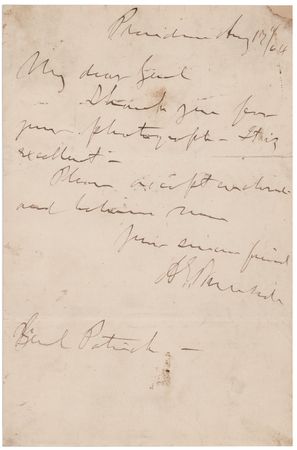 Providence Aug 17/64
My dear Genl
Thank you for
your photograph - It is
excellent -
Please accept enclosed
and believe me
Your sincere friend
A E Burnside
Genl Patrick -